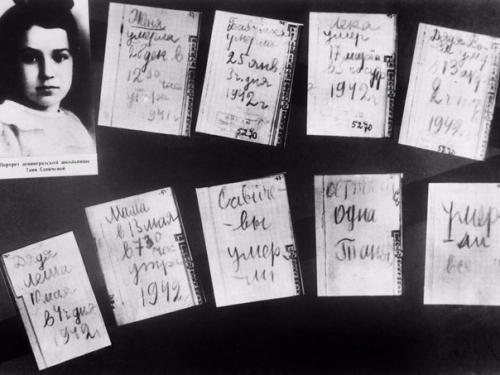 Портрет ленинградской школьницы
Тани Савичевой
Женя
умерла
28 дек в
12 30
час
утра
1941 г
Бабушка
умерла
25 янв.
3 ч дня
1942 г
5270
Лека
умер
17 марта
в 5 час утр
1942 г
5270
Дядя Ва
умер
13 апр
2 ч
1942 г
5270
Дядя
Леша
10 мая
в 4 ч дня
1942 г
Мама
в 13 мая
в 7 30 час
утра
1942 г
Савиче-
-вы
умер-
-ли
одна
Таня
умер
-ли
все